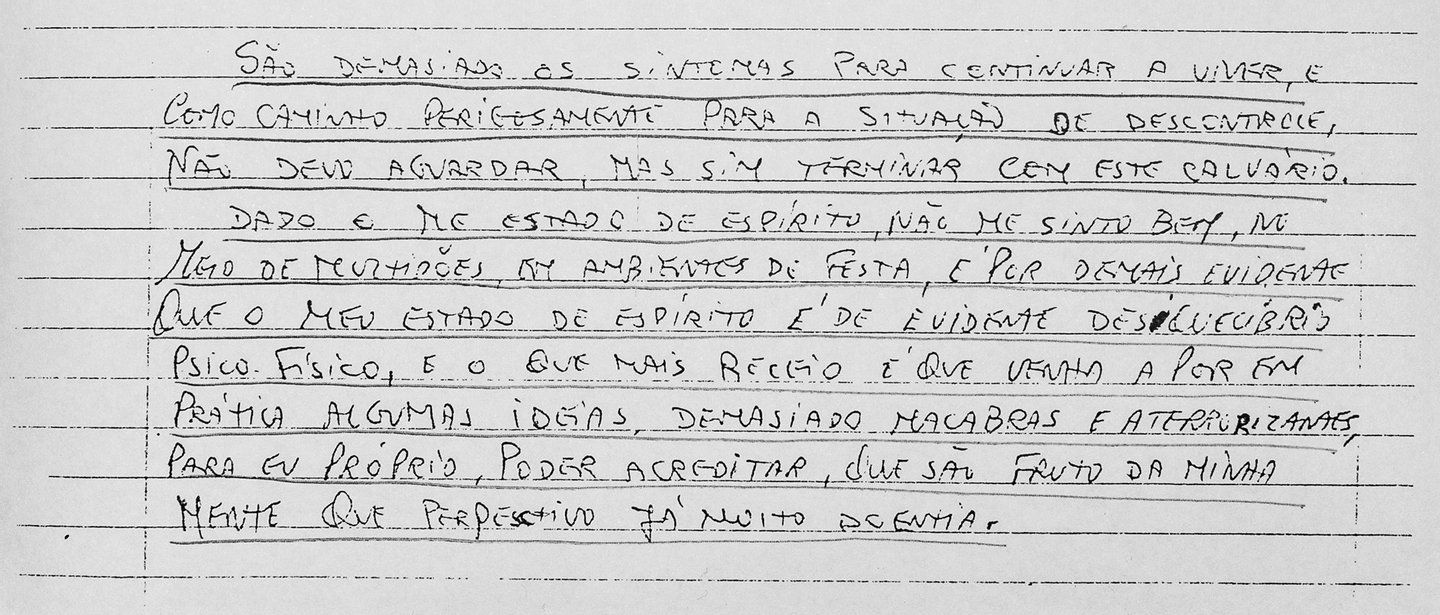 SÃO DEMASIADO OS SINTOMAS PARA CONTINUAR A VIVER, E
COMO CAMINHO PERIGOSAMENTE PARA A SITUAÇÃO DE DESCONTROLE,
NÃO DEVO AGUARDAR, MAS SIM TERMINAR COM ESTE CALVÁRIO.
DADO O ME ESTADO DE ESPÍRITO, NÃO ME SINTO BEM, NO
MEIO DE MULTIDÕES, EM AMBIENTES DE FESTA, E POR DEMAIS EVIDENTE
QUE O MEU ESTADO DE ESPÍRITO É DE EVIDENTE DESIQUELÍBRIO
PSICO-FÍSICO, E O QUE MAIS RECEIO É QUE VENHA A POR EM
PRÁTICA ALGUMAS IDEIAS, DEMASIADO MACABRAS E ATERRORIZANTES,
PARA EU PRÓPRIO, PODER ACREDITAR, QUE SÃO FRUTO DA MINHA
MENTE QUE PERPESCTIVO JÁ MUITO DOENTIA.